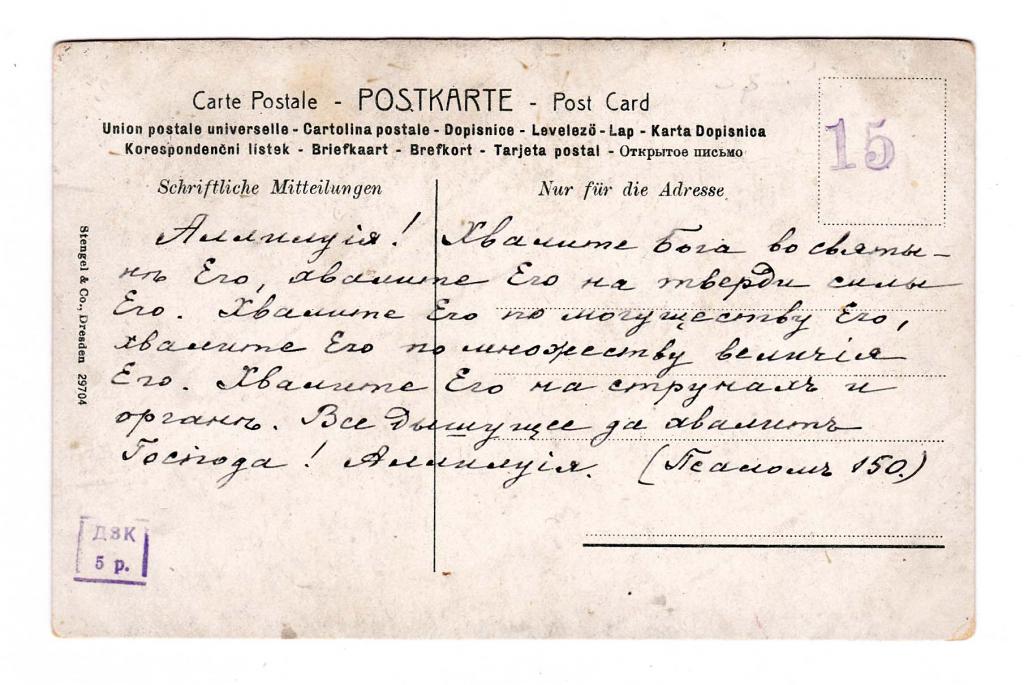 Carte Postale - POSTKARTE - Post Card
Union postale universelle - Cartolina postale - Dopisnice - Levelező - Lap - Karta Dopisnica
Korespondenčni listek - Briefkaart - Brefkort - Tarjeta postal - Открытое письмо
15
Schriftliche Mitteilungen
Nur für die Adresse
Аллилуія! Хвалите Бога во святы-
нѣ Его, хвалите Его на тверди силы
Его. Хвалите Его по могуществу Его,
хвалите Его по множеству величія
Его. Хвалите Его на струнахъ и
органѣ. Все дышущее да хвалитъ
Господа! Аллилуія. (Псаломъ 150.)
Stengel & Co., Dresden 29704
ДЗК
5 р.